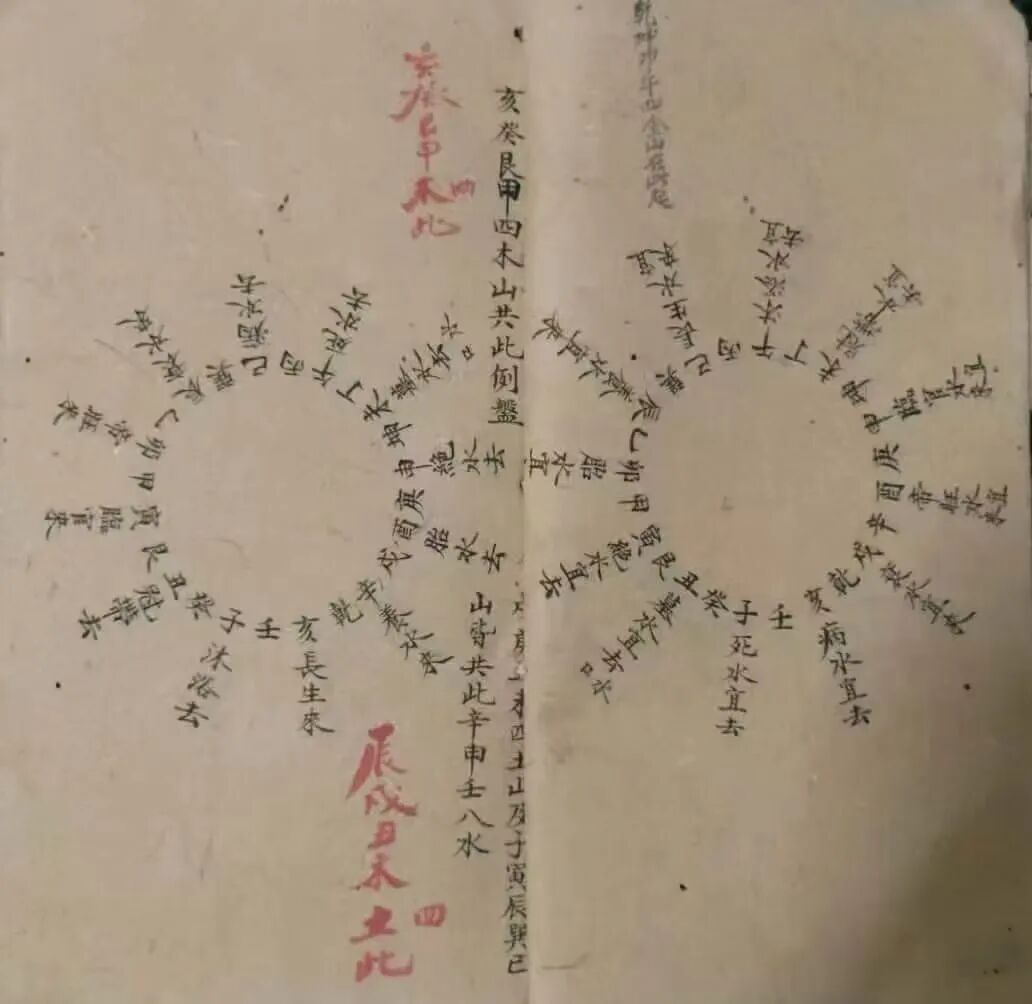 亥癸艮甲四木山共此倒盤
亥癸艮甲四木此
乾坤卯午四金山在此起
辰巽巳丙午丁未坤申庚酉辛戌乾亥壬子癸丑艮寅甲卯乙
長生水宜來
沐浴水宜去
冠帶水宜去
臨官水宜來
帝旺水宜來
衰水宜來
病水宜去
死水宜去
墓水宜去口水
絕水宜去
胎水宜
養水宜來
巽巳丙午丁未坤申庚酉戌辛乾亥壬子癸丑艮寅甲卯乙辰
病水去
死水去
墓水去口水
絕水去
胎水去
養水來
亥長生來
沐浴去
冠帶去
臨官來
帝旺來
衰水來
未四土山及子寅辰巽巳
山皆共此辛申壬八水
辰戌丑未四土此